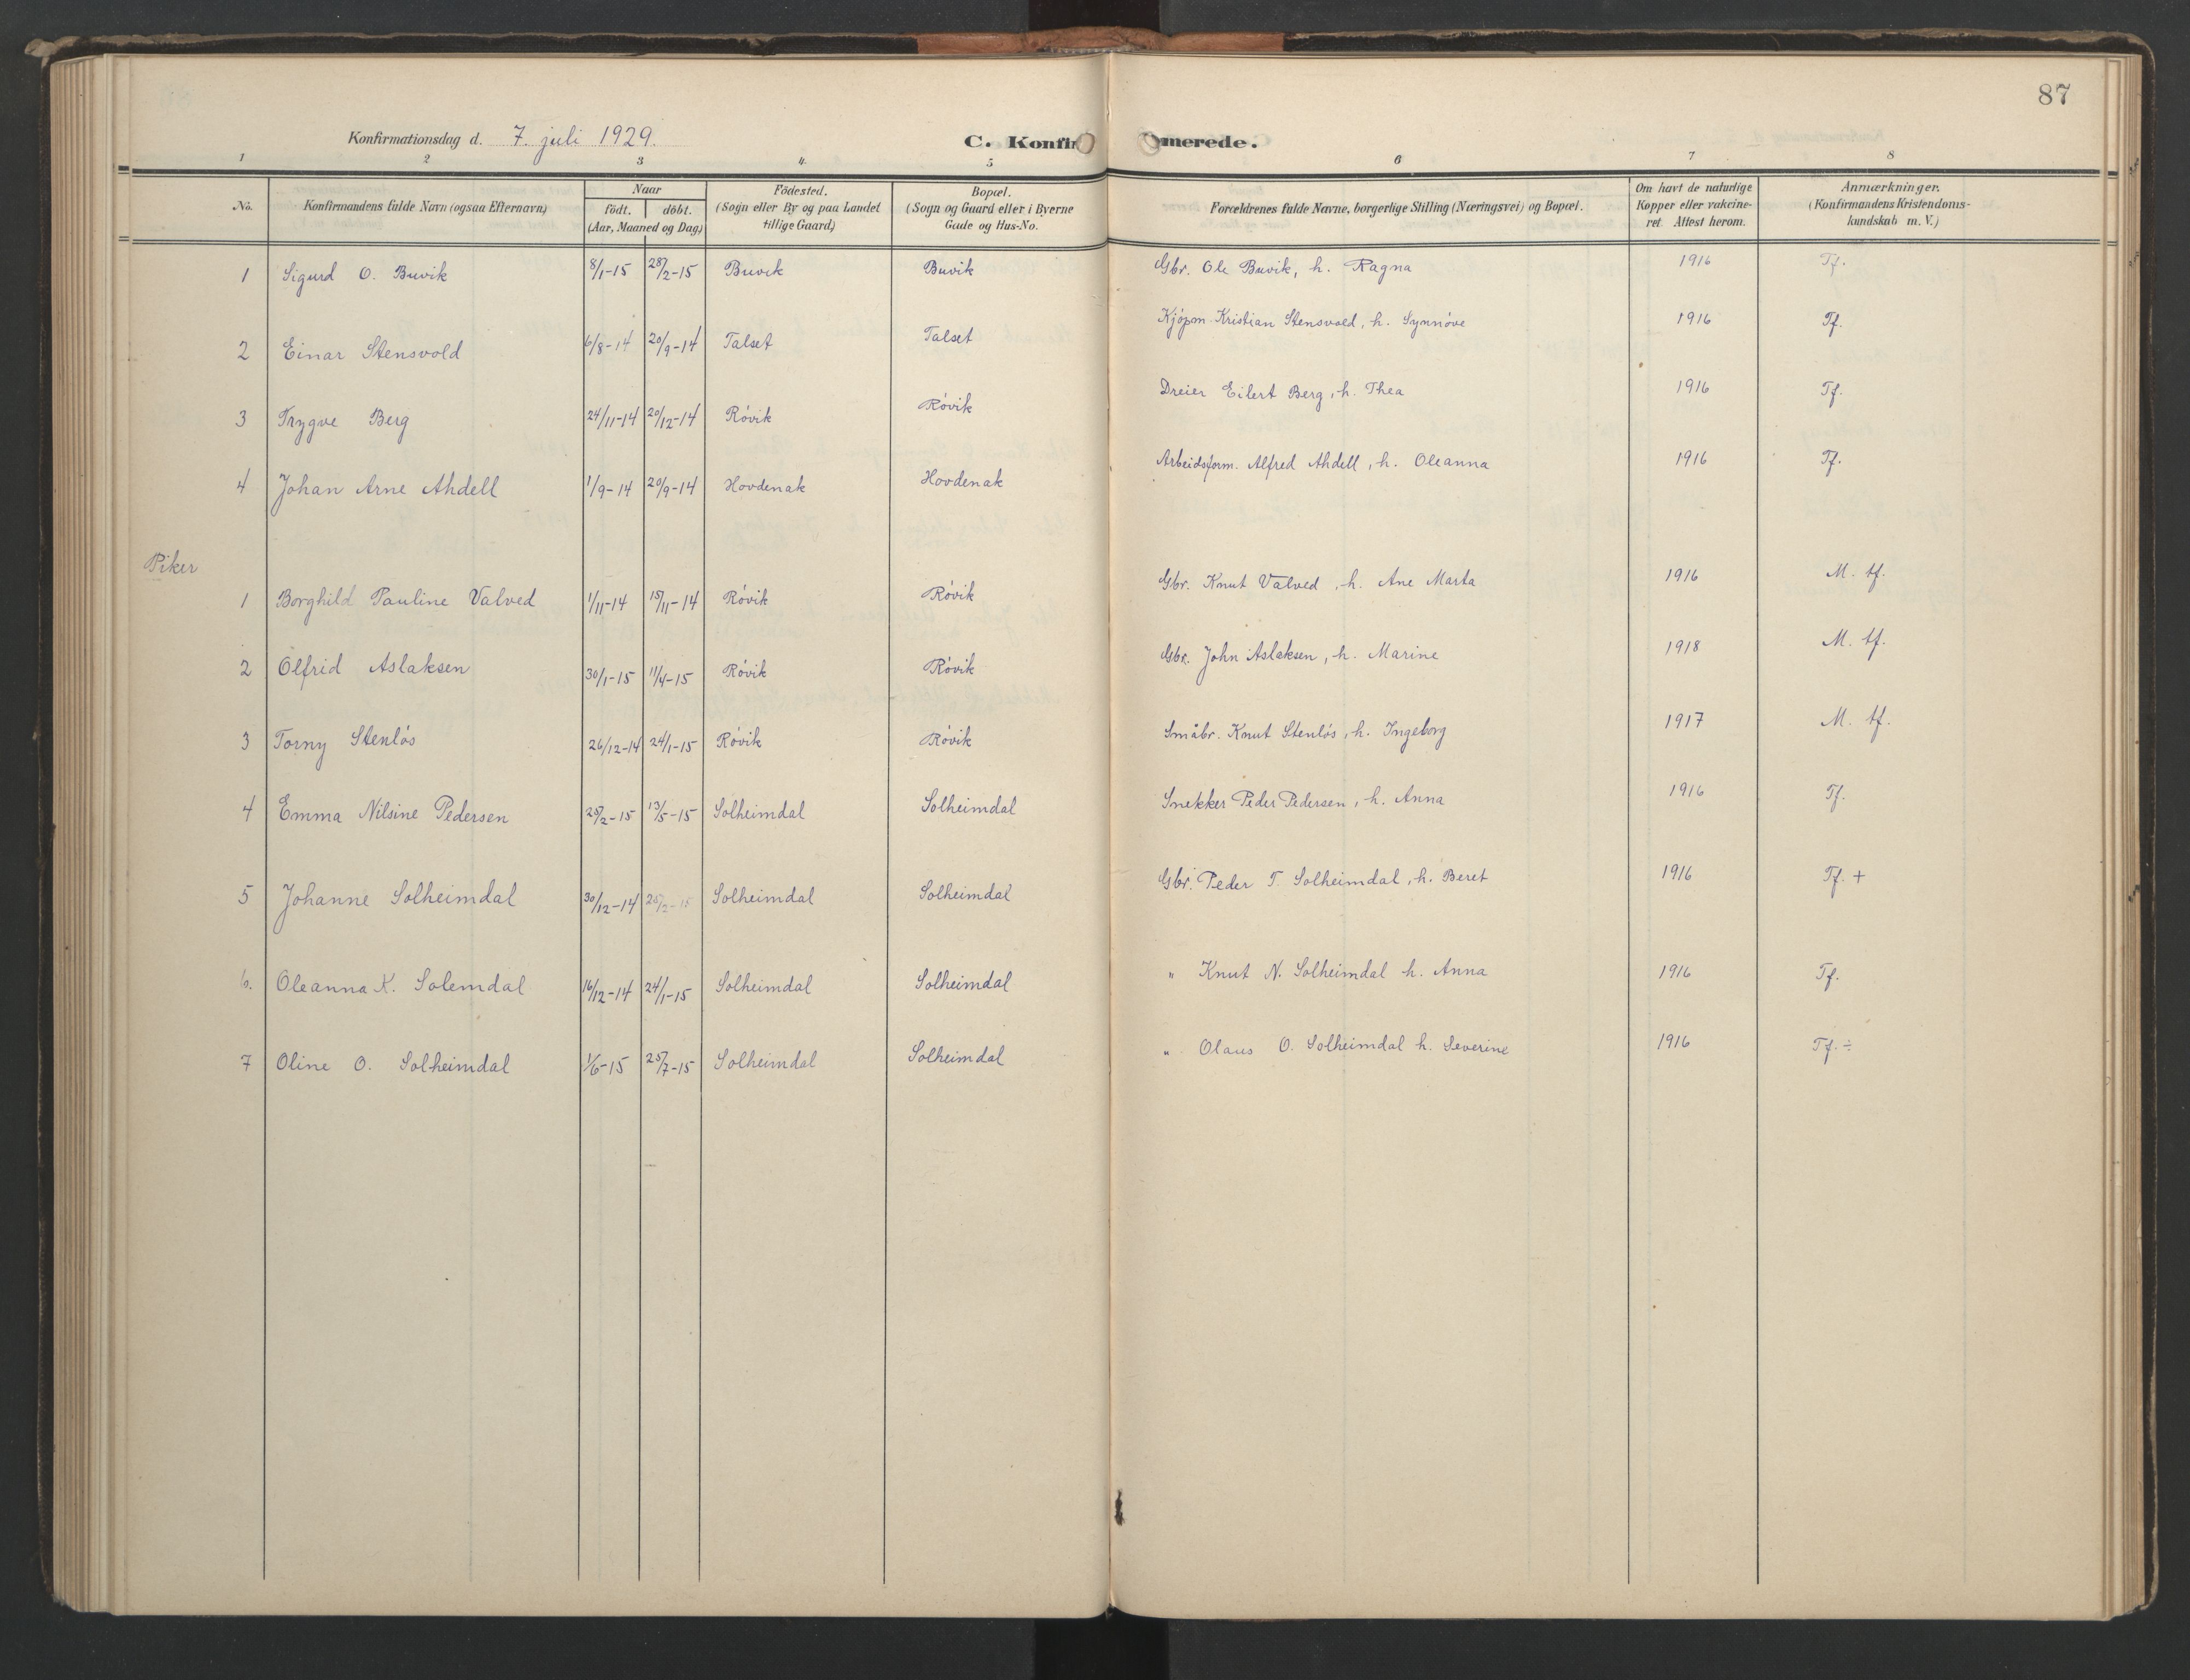 87
Konfirmationsdag d. 7. juli 1929.
C. Konfirmerede.
1 2 3 4. 5 6 7 8
No. Konfirmandens fulde Navn (ogsaa Efternavn) Naar födt. döbt. (Aar, Maaned og Dag) Födested. (Sogn eller By og paa Landet tillige Gaard) Bopæl. (Sogn og Gaard eller i Byerne Gade og Hus-No. Forældrenes fulde Navne, borgerlige Stilling (Næringsvei) og Bopæl. Om havt de naturlige Kopper eller vakcineret. Attest herom. Anmærkninger. (Konfirmandens Kristendomskundskab m. V.)
1 Sigurd O. Buvik 8/1-15 28/2-15 Buvik Buvik Gbr. Ole Buvik, h. Ragna 1916 Tf.
2 Einar Stensvold 6/8-14 20/9-14 Talset Talset Kjöpm. Kristian Stensvold, h. Synnöve 1916 Tf.
3 Trygve Berg 24/11-14 20/12-14 Rövik Rövik Dreier Eilert Berg, h. Thea 1916 Tf.
4 Johan Arne Ahdell 1/9-14 20/9-14 Hovdenak Hovdenak Arbeidsform. Alfred Ahdell, h. Oleanna 1916 Tf.
Piker
1 Borghild Pauline Valved 1/11-14 15/11-14 Rövik Rövik Gbr. Knut Valved, h. Ane Marta 1916 M. tf.
2 Olfrid Aslaksen 30/1-15 11/4-15 Rövik Rövik Gbr. John Aslaksen, h. Marine 1918 M. tf.
3 Torny Stenlös 26/12-14 24/1-15 Rövik Rövik Småbr. Knut Stenlös, h. Ingeborg 1917 M. tf.
4 Emma Nilsine Pedersen 25/2-15 13/5-15 Solheimdal Solheimdal Snekker Peder Pedersen, h. Anna 1916 Tf.
5 Johanne Solheimdal 30/12-14 25/2-15 Solheimdal Solheimdal Gbr. Peder T. Solheimdal, h. Beret 1916 Tf. +
6. Oleanna K. Solemdal 16/12-14 24/1-15 Solheimdal Solheimdal " Knut N. Solheimdal h. Anna 1916 Tf.
7 Oline O. Solheimdal 1/6-15 25/7-15 Solheimdal Solheimdal " Olaus O. Solheimdal h. Severine 1916 Tf. ÷